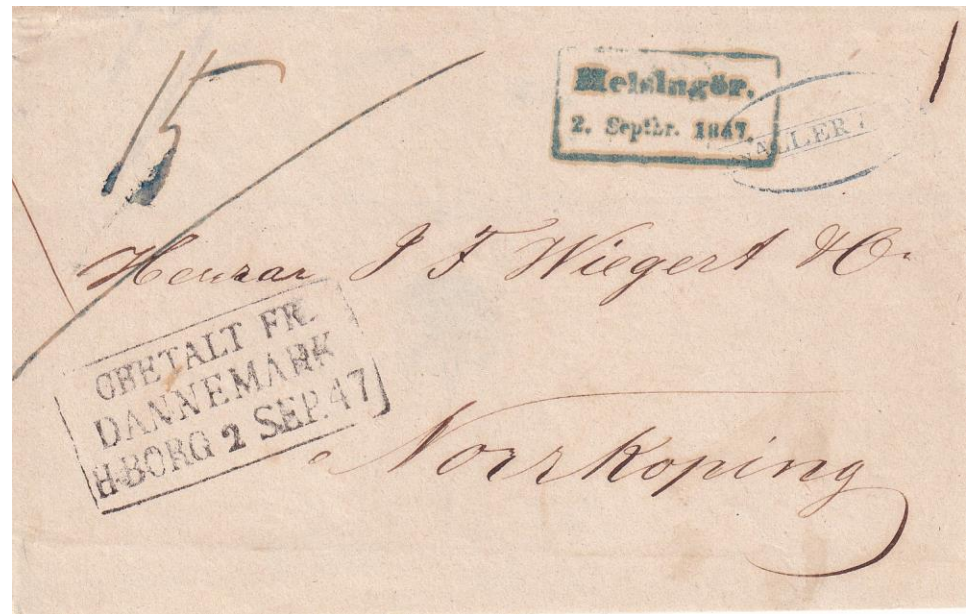 15
1
Helsingör.
2. Septbr. 1847.
Herrar J F Wiegert & Co
OBETALT FR.
DANNEMARK
H-BORG 2 SEP. 47
Norrkoping